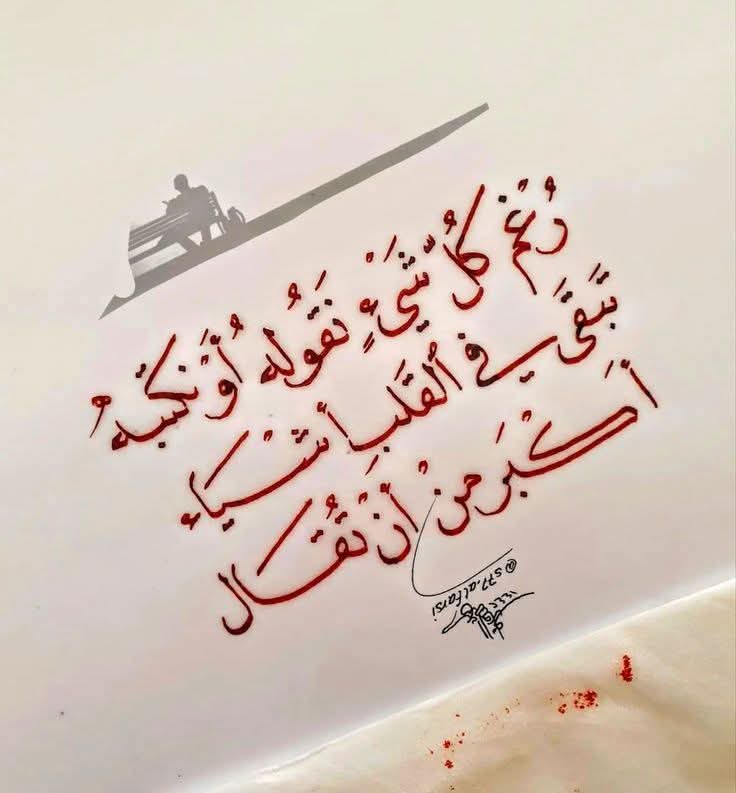 رُغْمَ كُلِّ شَيْءٍ نَقُولُه أَوْ نَكتبهُ
تَبقَى في القَلبِ أشْيَاء
أَكْبَر مِنْ أنْ تُقَال
@s77.alfarsi